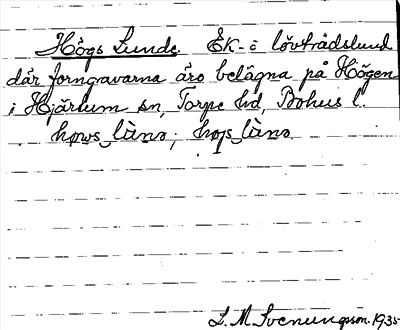 Högs Lunde Ek- o lövträdslund
där forngravarna äro belägna på Högen
i Hjärtum sn, Torpe hd, Bohus l.
L. M. Svenungsson. 1935